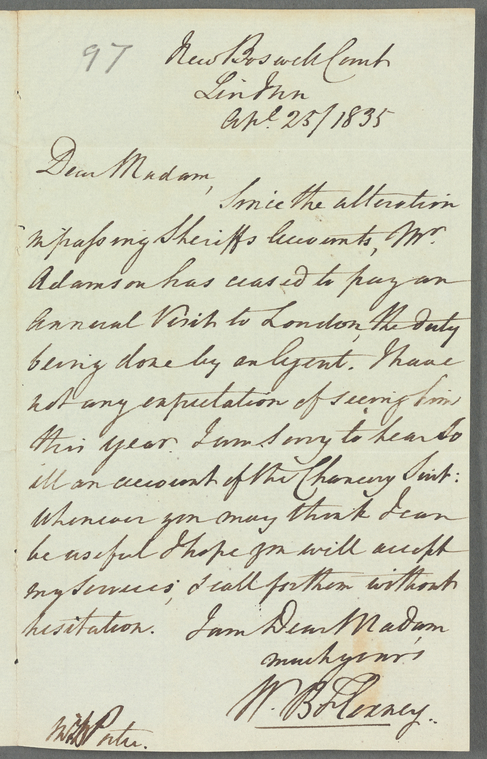 97
New Boswell Court
Lin Inn
Apl. 25/1835
Dear Madam,
Since the alteration
in passing Sheriffs Accounts, Mr.
Adamson has ceased to pay an
Annual Visit to London, the duty
being done by an Agent. I have
not any expectation of seeing him
this year. I am Sorry to hear So
ill an account of the Chancery Suit:
Whenever you may think I can
be useful I hope you will accept
my Services, & call for them without
hesitation. I am Dear Madam
much yours
W.
Porter.